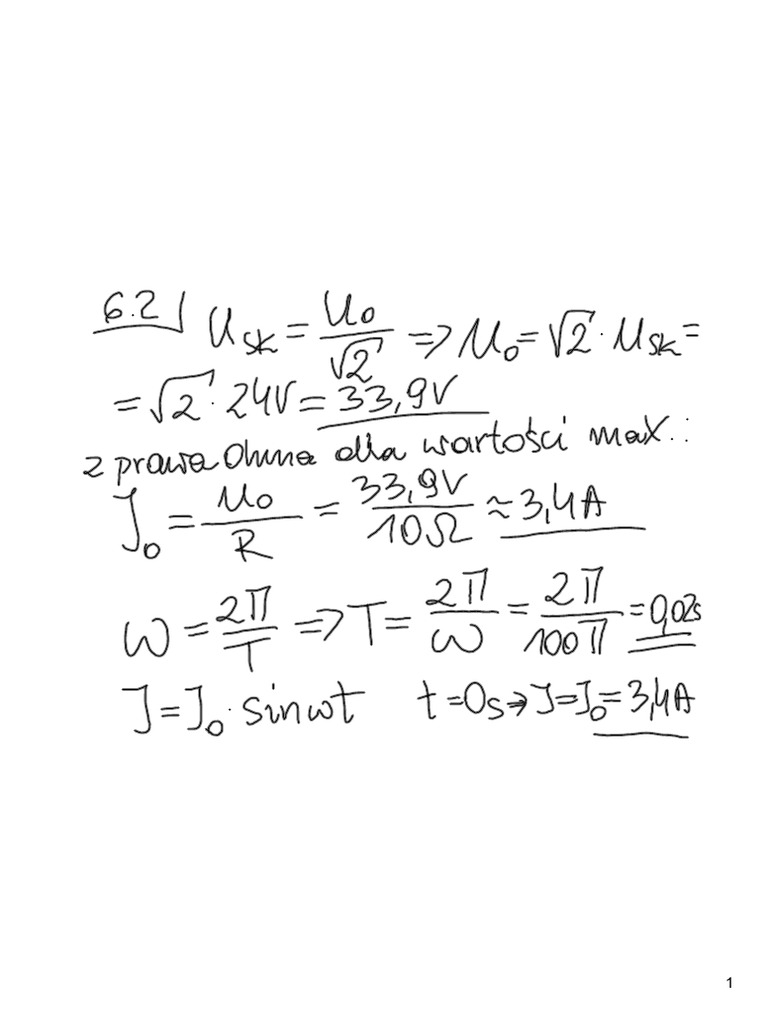 6.2 U_sk = U_0/√2 => U_0 = √2 · U_sk =
= √2 · 24V = 33,9V
z prawa Ohma dla wartości max.:
J_0 = U_0/R = 33,9V/10Ω ≈ 3,4A
ω = 2π/T => T = 2π/ω = 2π/100π = 0,02s
J = J_0 · sinωt t=0s → J=J_0=3,4A
1